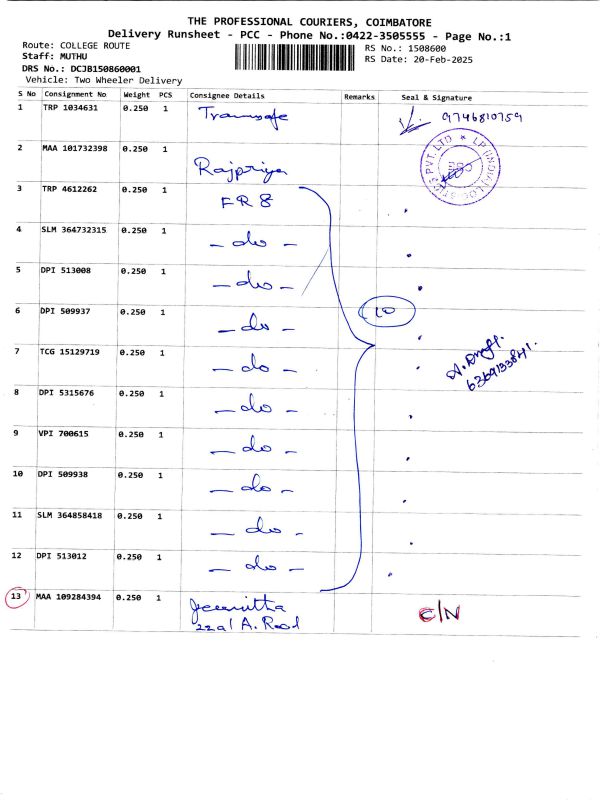 THE PROFESSIONAL COURIERS, COIMBATORE
Delivery Runsheet - PCC - Phone No.:0422-3505555 - Page No.:1
Route: COLLEGE ROUTE
RS No.: 1508600
Staff: MUTHU
RS Date: 20-Feb-2025
DRS No.: DCJB150860001
Vehicle: Two Wheeler Delivery
S No Consignment No Weight PCS Consignee Details Remarks Seal & Signature
1 TRP 1034631 0.250 1 9746810759
2 MAA 101732398 0.250 1 Rajpriya
3 TRP 4612262 0.250 1 FR 8
4 SLM 364732315 0.250 1 - do -
5 DPI 513008 0.250 1 - do -
6 DPI 509937 0.250 1 - do - 10
7 TCG 15129719 0.250 1 - do -
8 DPI 5315676 0.250 1 - do -
9 VPI 700615 0.250 1 - do -
10 DPI 509938 0.250 1 - do -
11 SLM 364858418 0.250 1 - do -
12 DPI 513012 0.250 1 - do -
13 MAA 109284394 0.250 1 C/N
A. Road